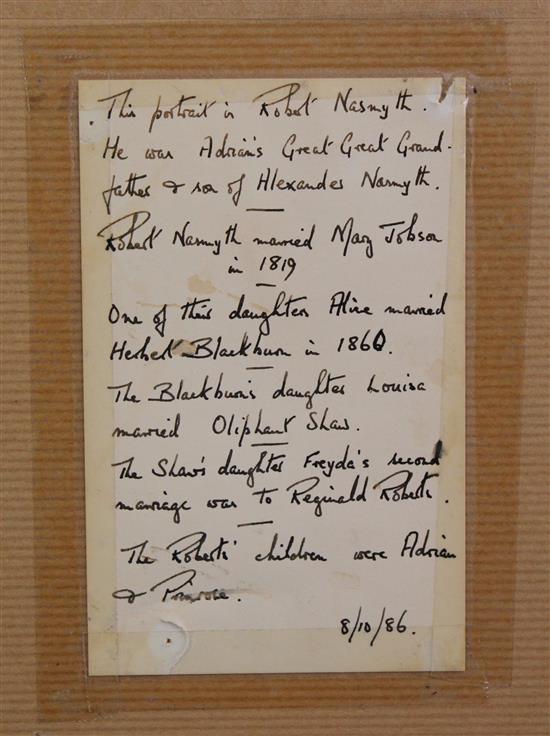 This portrait is Robert Nasmyth.
He was Adrian's Great Great Grand-
father & son of Alexander Nasmyth.
Robert Nasmyth married Mary Jobson
in 1819
One of their daughters Alice married
Herbert Blackburn in 1860.
The Blackburn's daughter Louisa
married Oliphant Shaw.
The Shaw's daughter Freyda's second
marriage was to Reginald Roberts.
The Roberts' children were Adrian
& Primrose.
8/10/86.